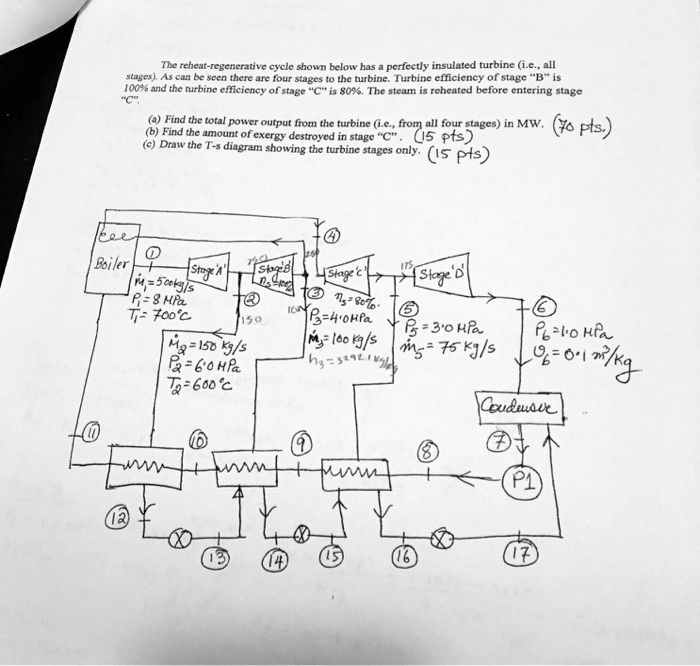 The reheat-regenerative cycle shown below has a perfectly insulated turbine (i.e., all
stages). As can be seen there are four stages to the turbine. Turbine efficiency of stage "B" is
100% and the turbine efficiency of stage "C" is 80%. The steam is reheated before entering stage
"C".
(a) Find the total power output from the turbine (i.e., from all four stages) in MW. (70 pts.)
(b) Find the amount of exergy destroyed in stage "C". (15 pts)
(c) Draw the T-s diagram showing the turbine stages only. (15 pts)
4
Boiler
1
Stage 'A'
Stage 'B'
Stage 'c'
175
Stage 'D'
ṁ1 = 500kg/s
P1 = 8 MPa
T1 = 700°C
2
150
3
ηs = 80%.
P3 = 4.0MPa
ṁ3 = 100 kg/s
5
P5 = 3.0 MPa
ṁ5 = 75 kg/s
6
P6 = 1.0 MPa
υ6 = 0.1 m³/kg
Ṁ2 = 150 kg/s
P2 = 6.0 MPa
T2 = 600°C
Condenser
11
10
9
8
7
P1
12
13
14
15
16
17